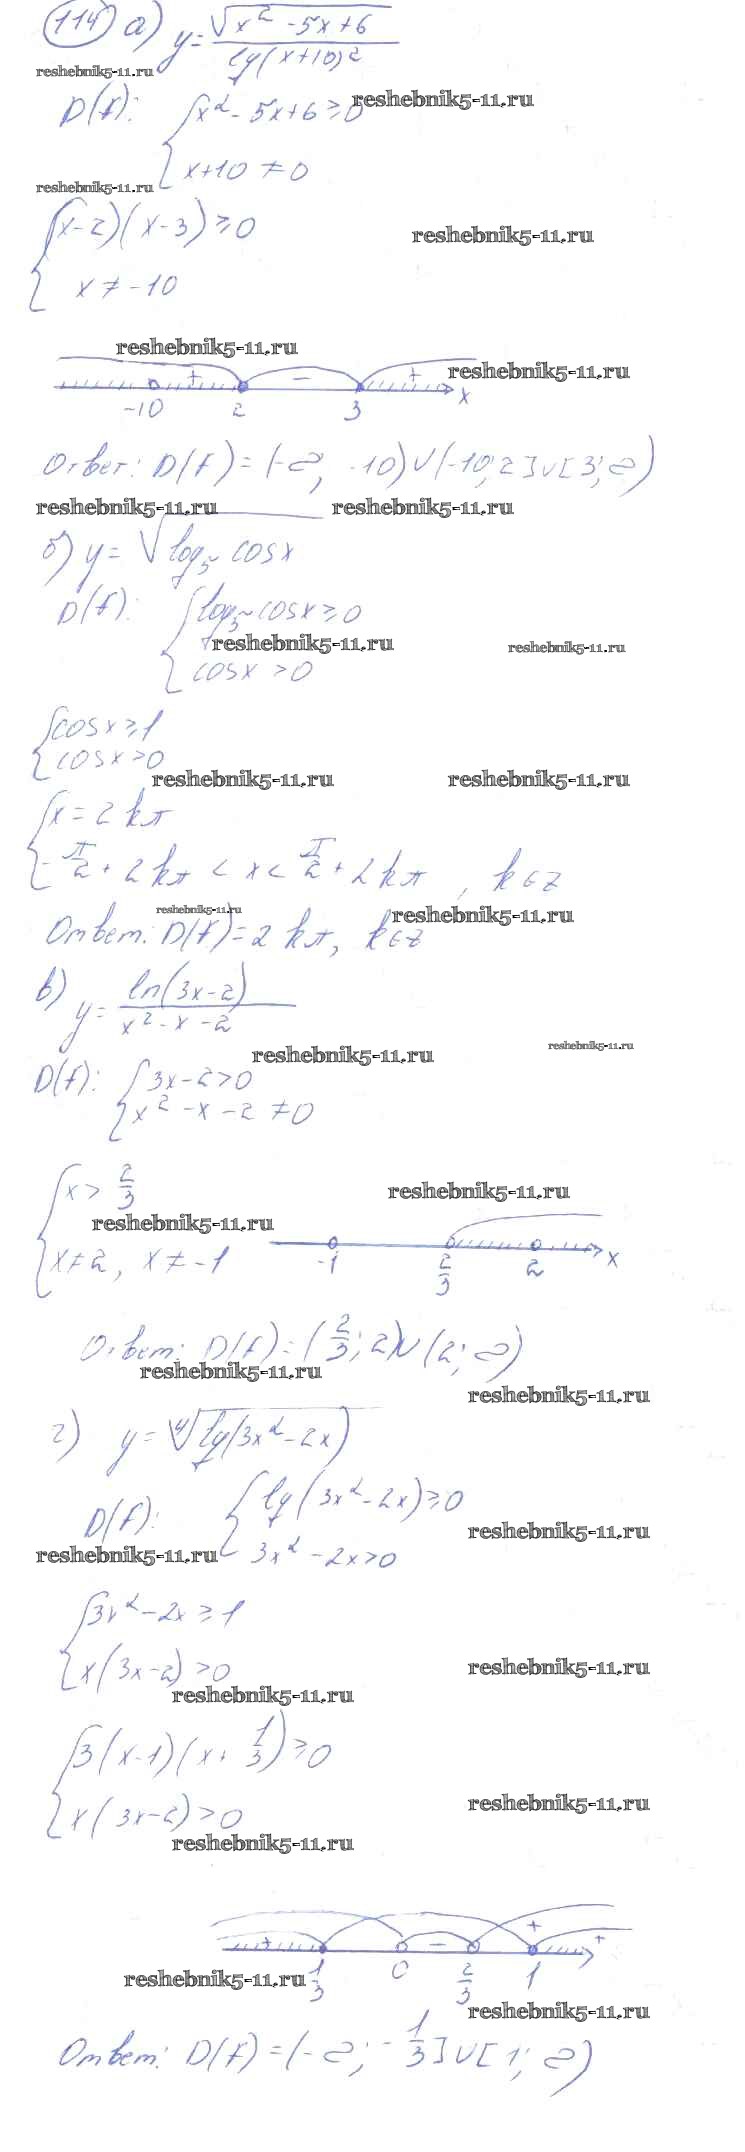 114 а) y = √(x² - 5x + 6) / lg(x+10)²
reshebnik5-11.ru
D(f): { x² - 5x + 6 ≥ 0
reshebnik5-11.ru
x + 10 ≠ 0
reshebnik5-11.ru
{ (x-2)(x-3) ≥ 0
reshebnik5-11.ru
x ≠ -10
reshebnik5-11.ru
+ - +
reshebnik5-11.ru
-10 2 3 x
Ответ: D(f) = (-∞, -10) ∪ (-10; 2] ∪ [3; ∞)
reshebnik5-11.ru reshebnik5-11.ru
б) y = √log₅ cosx
D(f): { log₅ cosx ≥ 0
reshebnik5-11.ru reshebnik5-11.ru
cosx > 0
{ cosx ≥ 1
cosx > 0
reshebnik5-11.ru reshebnik5-11.ru
{ x = 2kπ
-π/2 + 2kπ < x < π/2 + 2kπ, k∈z
reshebnik5-11.ru reshebnik5-11.ru
Ответ: D(f) = 2kπ, k∈z
в) y = ln(3x-2) / x² - x - 2
reshebnik5-11.ru reshebnik5-11.ru
D(f): { 3x - 2 > 0
x² - x - 2 ≠ 0
{ x > 2/3
reshebnik5-11.ru
reshebnik5-11.ru
x ≠ 2, x ≠ -1
-1 2/3 2 x
Ответ: D(f) = (2/3; 2) ∪ (2; ∞)
reshebnik5-11.ru
reshebnik5-11.ru
г) y = ⁴√lg(3x² - 2x)
D(f): { lg(3x² - 2x) ≥ 0
reshebnik5-11.ru
reshebnik5-11.ru
3x² - 2x > 0
{ 3x² - 2x ≥ 1
x(3x-2) > 0
reshebnik5-11.ru
reshebnik5-11.ru
{ 3(x-1)(x + 1/3) ≥ 0
x(3x-2) > 0
reshebnik5-11.ru
reshebnik5-11.ru
+ - + +
reshebnik5-11.ru
1/3 0 2/3 1
reshebnik5-11.ru
Ответ: D(f) = (-∞; -1/3] ∪ [1; ∞)